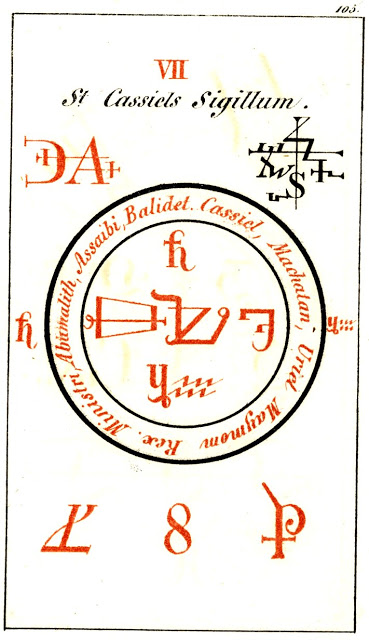 105.
VII
St Cassiels Sigillum.
Cassiel, Machatan, Uriel Maymon Rex. Ministri, Abumalith, Assaibi, Balidet.
8